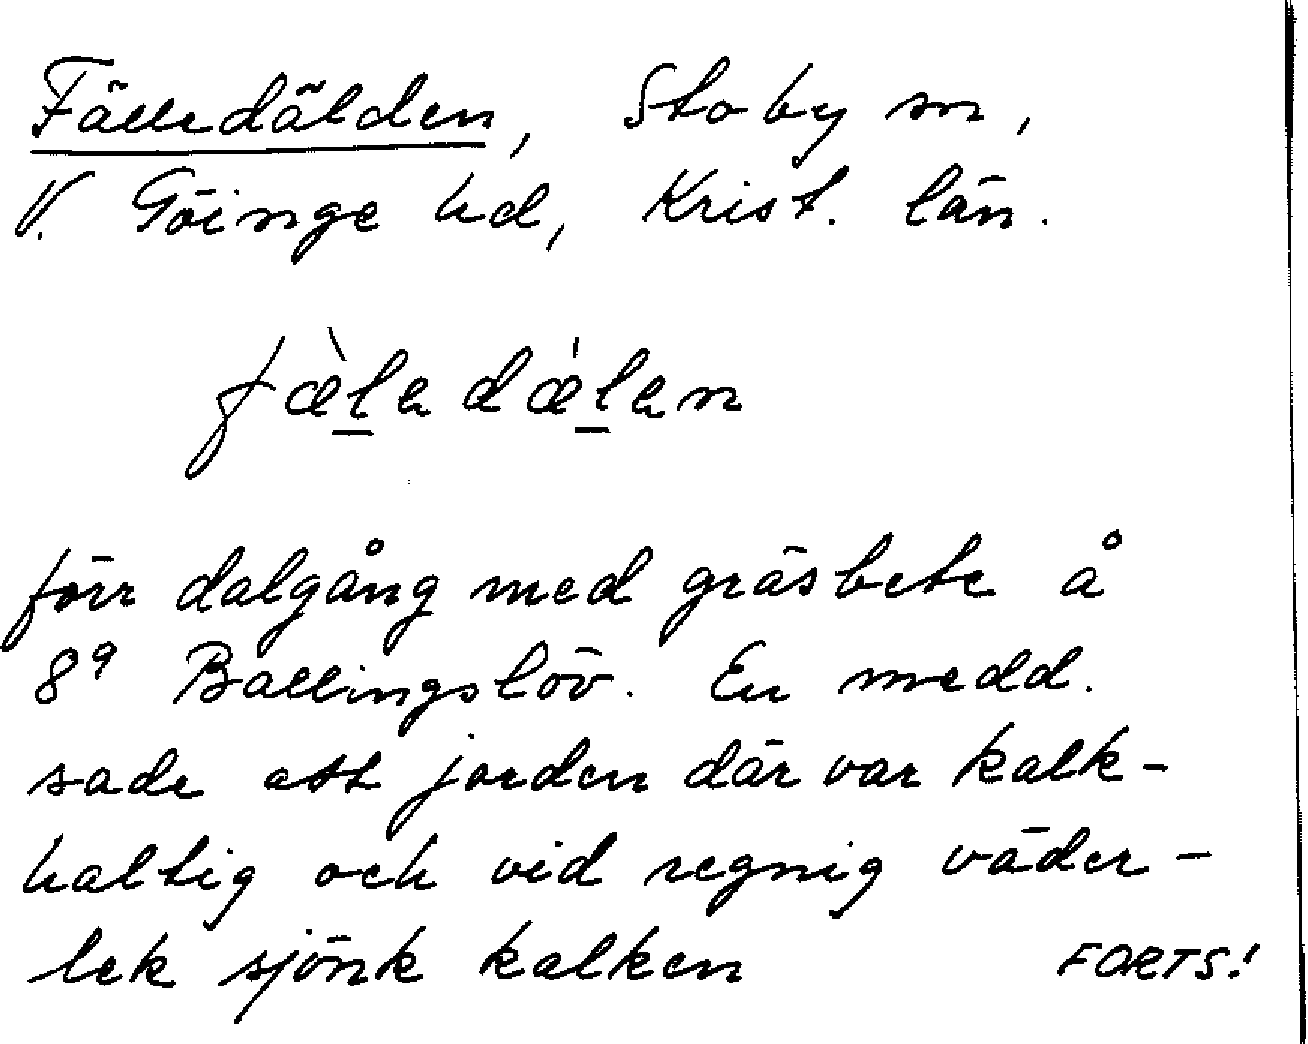 Fälledälden, Stoby sn,
V. Göinge hd, Krist. län.
fæ̀l̲edǽl̲en
förr dalgång med gräsbete å
8⁹ Ballingslöv. En medd.
sade att jorden där var kalk-
haltig och vid regnig väder-
lek sjönk kalken FORTS!